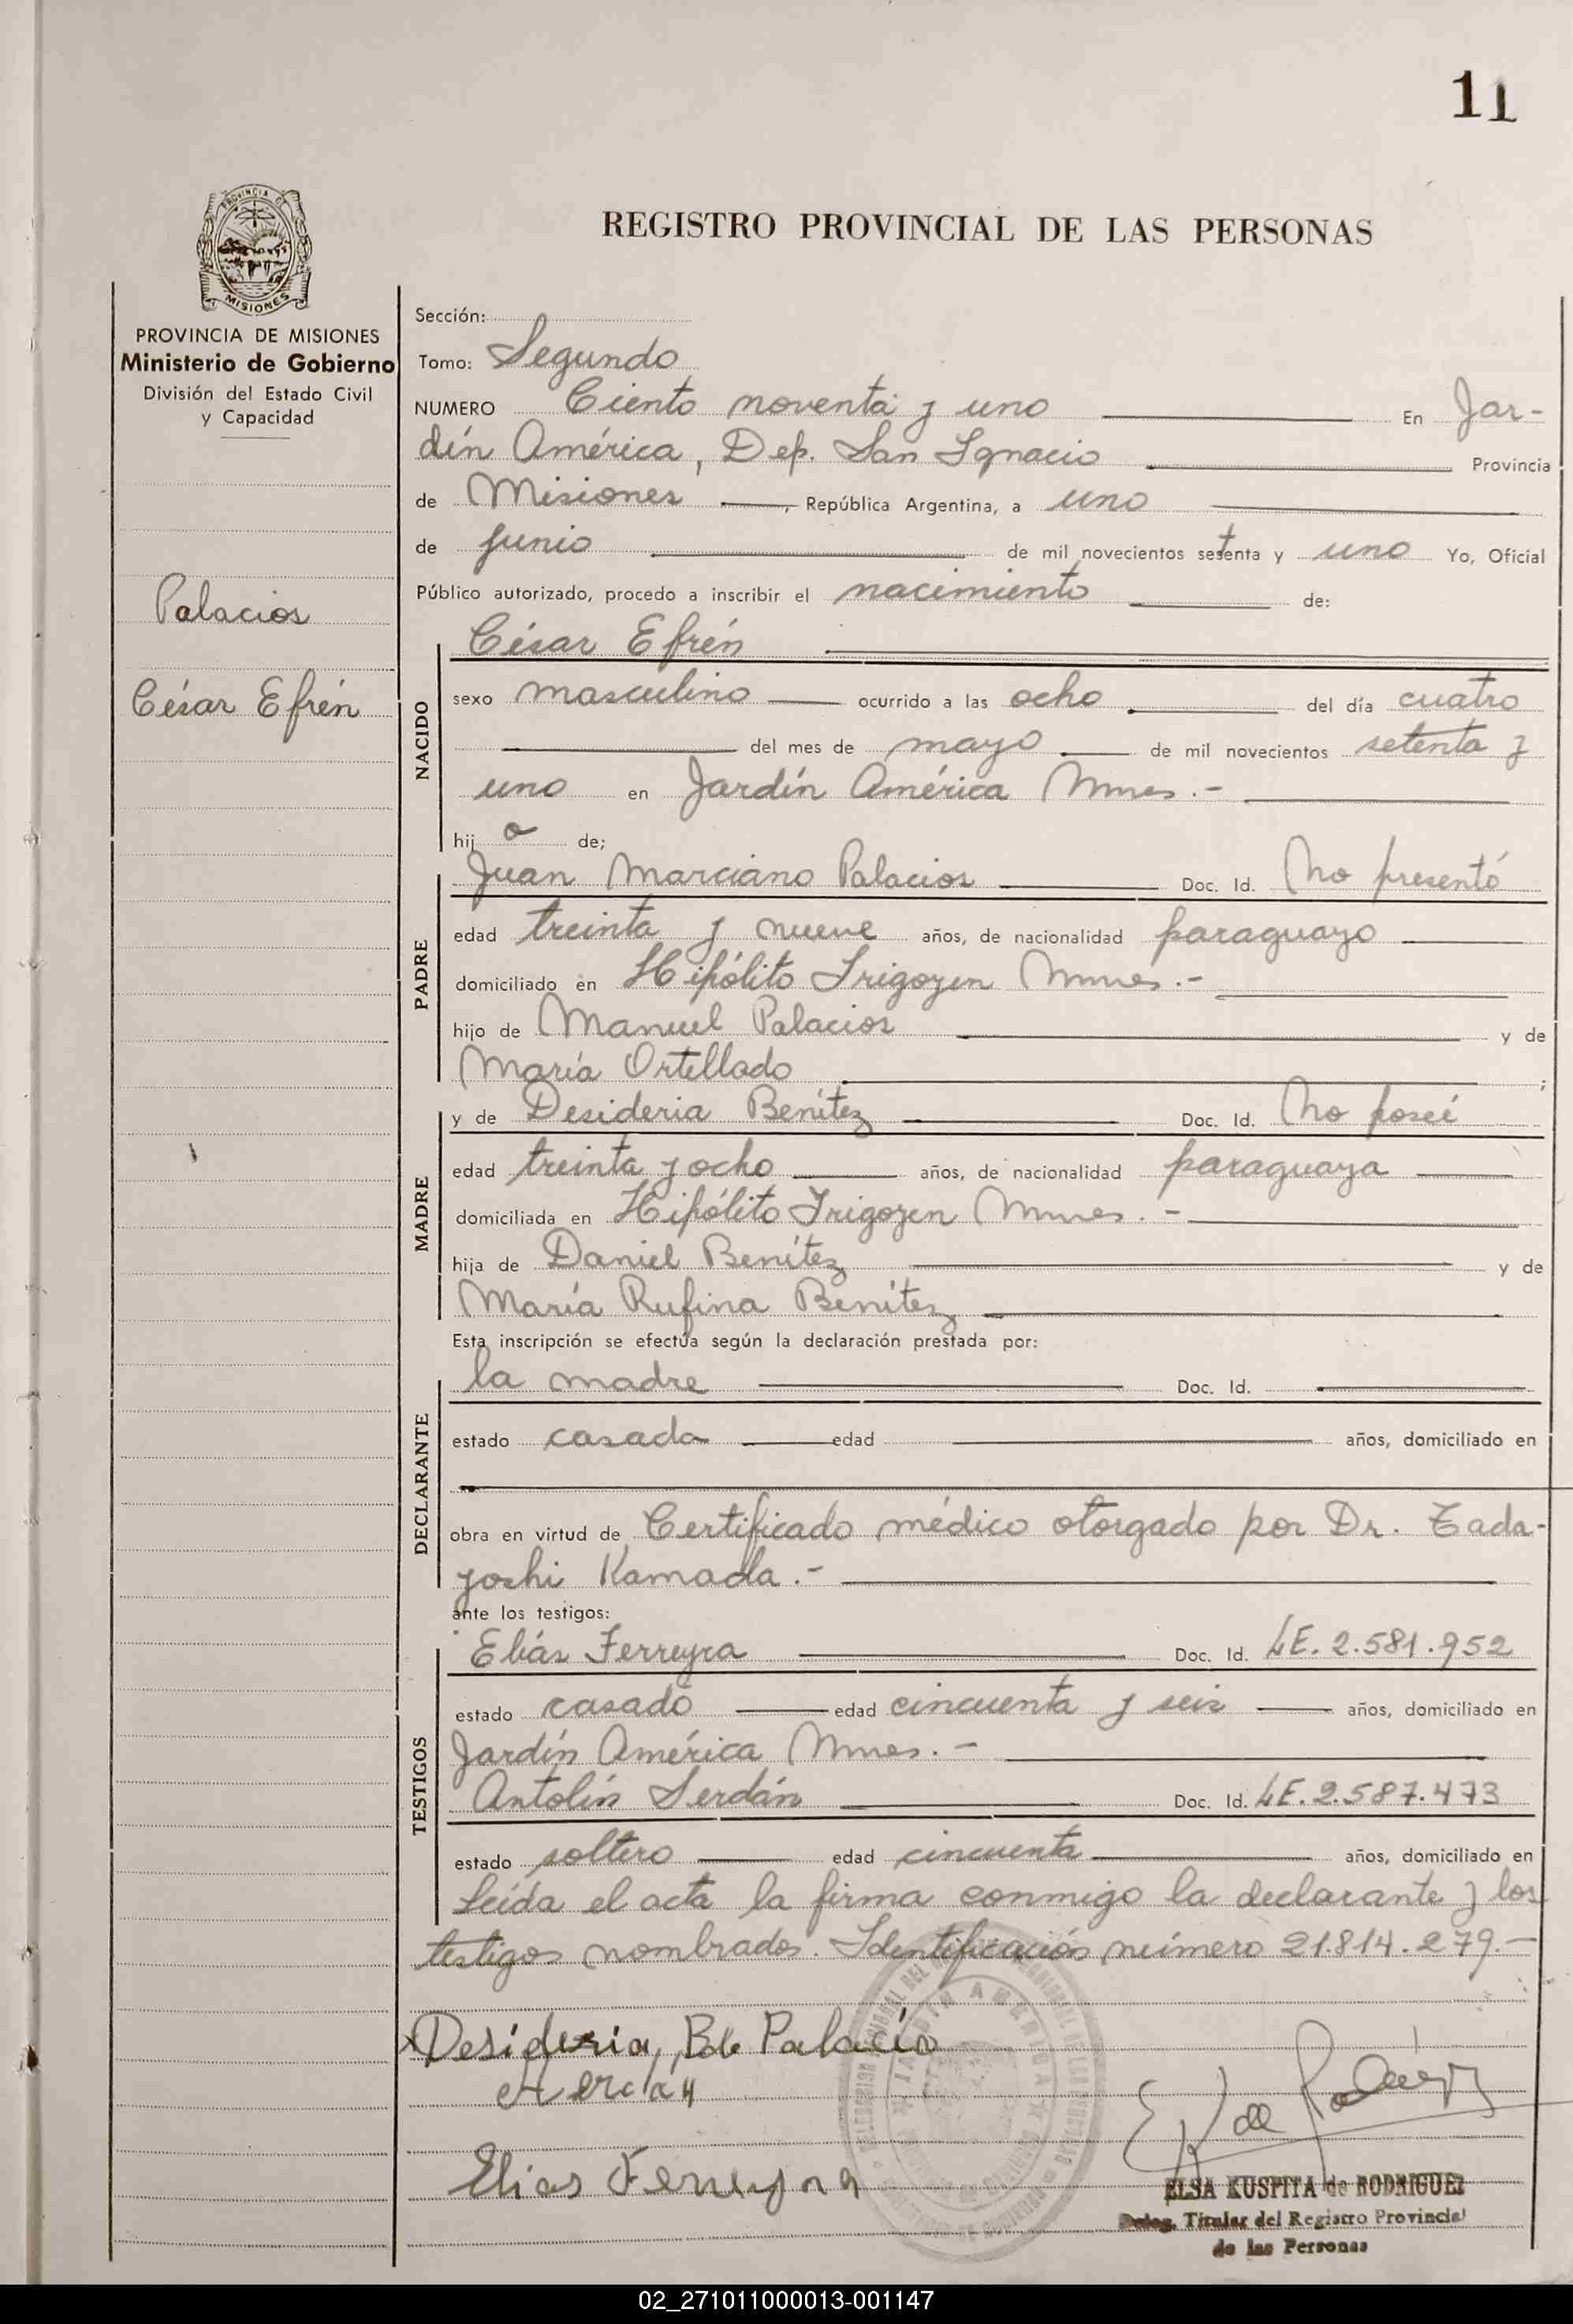 11
REGISTRO PROVINCIAL DE LAS PERSONAS
PROVINCIA DE
MISIONES
PROVINCIA DE MISIONES
Ministerio de Gobierno
División del Estado Civil
y Capacidad
Palacios
César Efrén
Sección:
Tomo: Segundo
NUMERO Ciento noventa y uno En Jar-
dín América, Dep. San Ignacio Provincia
de Misiones, República Argentina, a uno
de junio de mil novecientos setenta y uno Yo, Oficial
Público autorizado, procedo a inscribir el nacimiento de:
NACIDO
César Efrén
sexo masculino ocurrido a las ocho del día cuatro
del mes de mayo de mil novecientos setenta y
uno en Jardín América Mnes.-
hijo de;
PADRE
Juan Marciano Palacios Doc. Id. No presentó
edad treinta y nueve años, de nacionalidad paraguayo
domiciliado en Hipólito Irigoyen Mnes.-
hijo de Manuel Palacios y de
María Ortellado ;
MADRE
y de Desideria Benítez Doc. Id. No poseé
edad treinta y ocho años, de nacionalidad paraguaya
domiciliada en Hipólito Irigoyen Mnes.-
hija de Daniel Benítez y de
María Rufina Benítez
Esta inscripción se efectúa según la declaración prestada por:
DECLARANTE
la madre Doc. Id.
estado casada edad años, domiciliado en
obra en virtud de Certificado médico otorgado por Dr. Tada-
yoshi Kamada.-
ante los testigos:
TESTIGOS
Elías Ferreyra Doc. Id. LE. 2.581.952
estado casado edad cincuenta y seis años, domiciliado en
Jardín América Mnes.-
Antolín Serdán Doc. Id. LE. 2.587.473
estado soltero edad cincuenta años, domiciliado en
Leída el acta la firma conmigo la declarante y los
testigos nombrados. Identificación número 21.814.279.-
Desideria, B de Palacio
Elias Ferreyra
JARDIN AMERICA
ELSA KUSPITA de RODRIGUEZ
Deleg. Titular del Registro Provincial
de las Personas
02_271011000013-001147